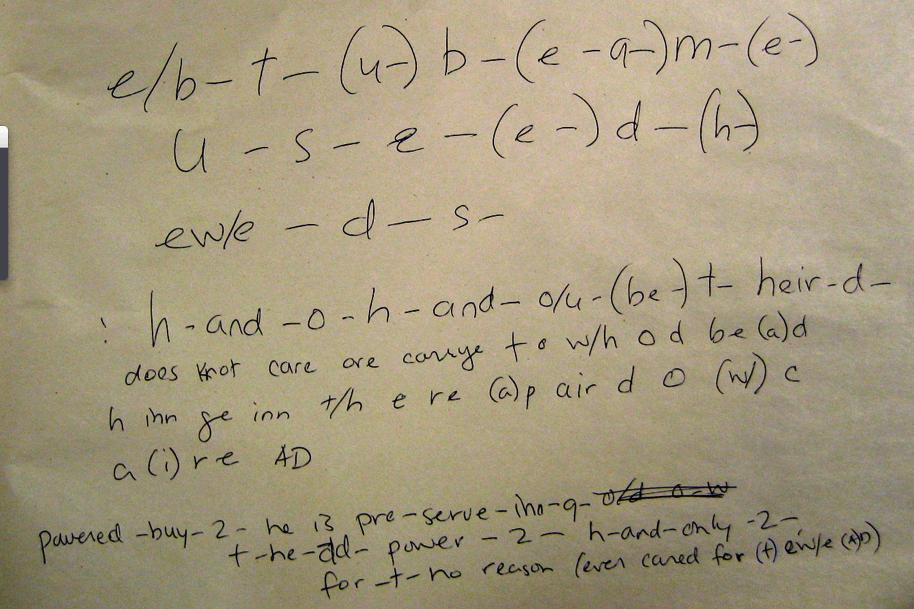 e/b - t - (u-) b - (e - a-) m - (e-)
U - s - e - (e -) d - (h-)
ew/e - d - s -
: h - and - o - h - and - o/u - (be-) t - heir - d -
does knot care ore carrye t o w/h o d be (a) d
h inn ge inn t/h e re (a) p air d o (w) c
a (i) r e AD
pavered - buy - 2 - he is pre - serve - ino - g -
t - he - dd - power - 2 - h - and - only - 2 -
for - t - no reason (ever cared for (t) ew/e (AD)